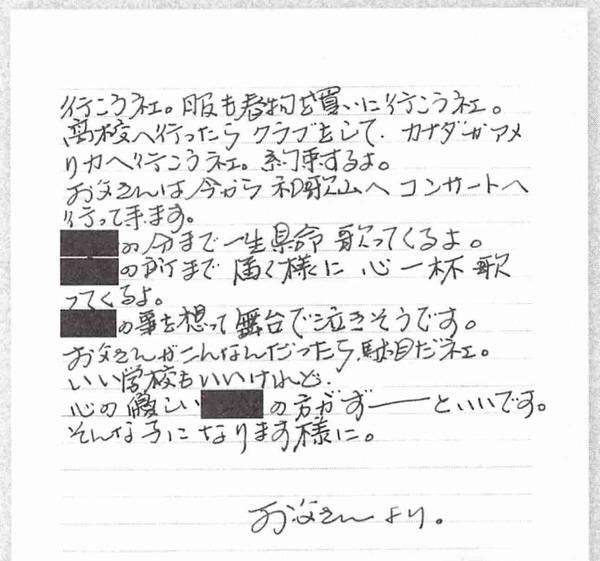 行こうネェ。服も春物を買いに行こうネェ。
高校へ行ったらクラブをして、カナダかアメ
リカへ行こうネェ。約束するよ。
お父さんは今から和歌山へコンサートへ
行って来ます。
の分まで一生県命歌ってくるよ。
の所まで届く様に心一杯歌
ってくるよ。
の事を想って舞台で泣きそうです。
お父さんがこんなんだったら駄目だネェ。
いい学校もいいけれど、
心の優しい の方がずーーーといいです。
そんな子になります様に。
お父さんより。